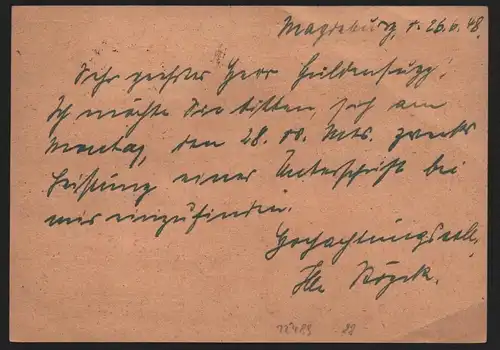 Magdeburg, d. 26.6.48.
Sehr geehrter Herr
Ich möchte Sie bitten, sich am
Montag, den 28. ds. Mts. zwecks
Leistung einer Unterschrift bei
mir einzufinden.
Hochachtungsvoll,
12489 22